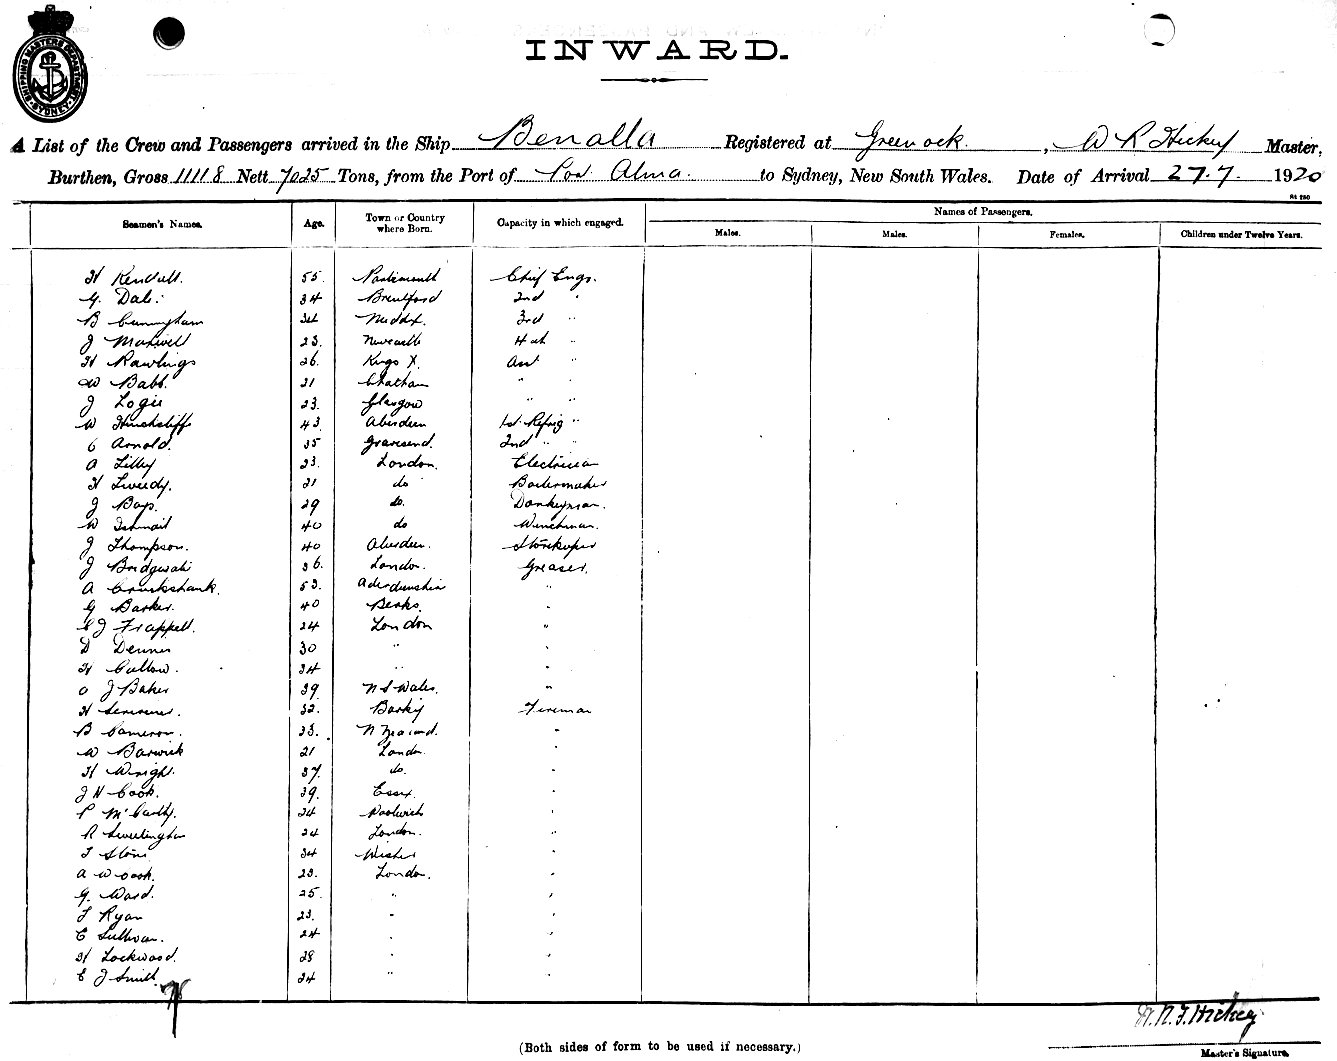 SHIPPING MASTERS DEPARTMENT SYDNEY
INWARD.
A List of the Crew and Passengers arrived in the Ship Benalla Registered at Greenock, W R Hickey Master,
Burthen, Gross 11118 Nett 7025 Tons, from the Port of Port Alma. to Sydney, New South Wales. Date of Arrival 27.7. 1920
Seamen's Names. Age. Town or Country where Born. Capacity in which engaged. Names of Passengers.
Males. Males. Females. Children under Twelve Years.
H Kendall. 55. Chief Engr.
G. Dale. 34 Brentford 2nd "
B Cunningham 34 Middx. 3rd "
J Maxwell 23. Newcastle 4th "
H Rawlings 26. Kings X. Asst "
W Babb. 21 Chatham " "
J Logie 23. Glasgow " "
W Hinchcliffe 43. Aberdeen 1st Refrig "
C Arnold. 35 Gravesend. 2nd " "
A Lilley 23. London. Electrician
H Tweedy. 21 do Boilermaker
J Bays. 29 do. Donkeyman.
W 40 do Winchman.
J Thompson. 40 Aberdeen. Storekeeper
J 36. London. Greaser.
A Cruikshank. 53. Aberdeenshire "
G Barker. 40 Berks. "
C J Frappell. 24 London "
D 30 " "
H Callow. 34 " "
O J Baker 39 N S Wales. "
H 32. Fireman
B Cameron. 33. N Zealand. "
W Barwick 21 London "
H Wright. 37 do. "
J H Cook. 39. Essex. "
P McCarthy. 24 Woolwich "
R 24 London. "
T Stone 34 "
A W Cook. 23. London. "
G. Ward. 25 " "
T Ryan 23. " "
C Sullivan. 24 " "
H Lockwood. 28 " "
C J Smith. 24 " "
W. R. Hickey
(Both sides of form to be used if necessary.)
Master's Signature.